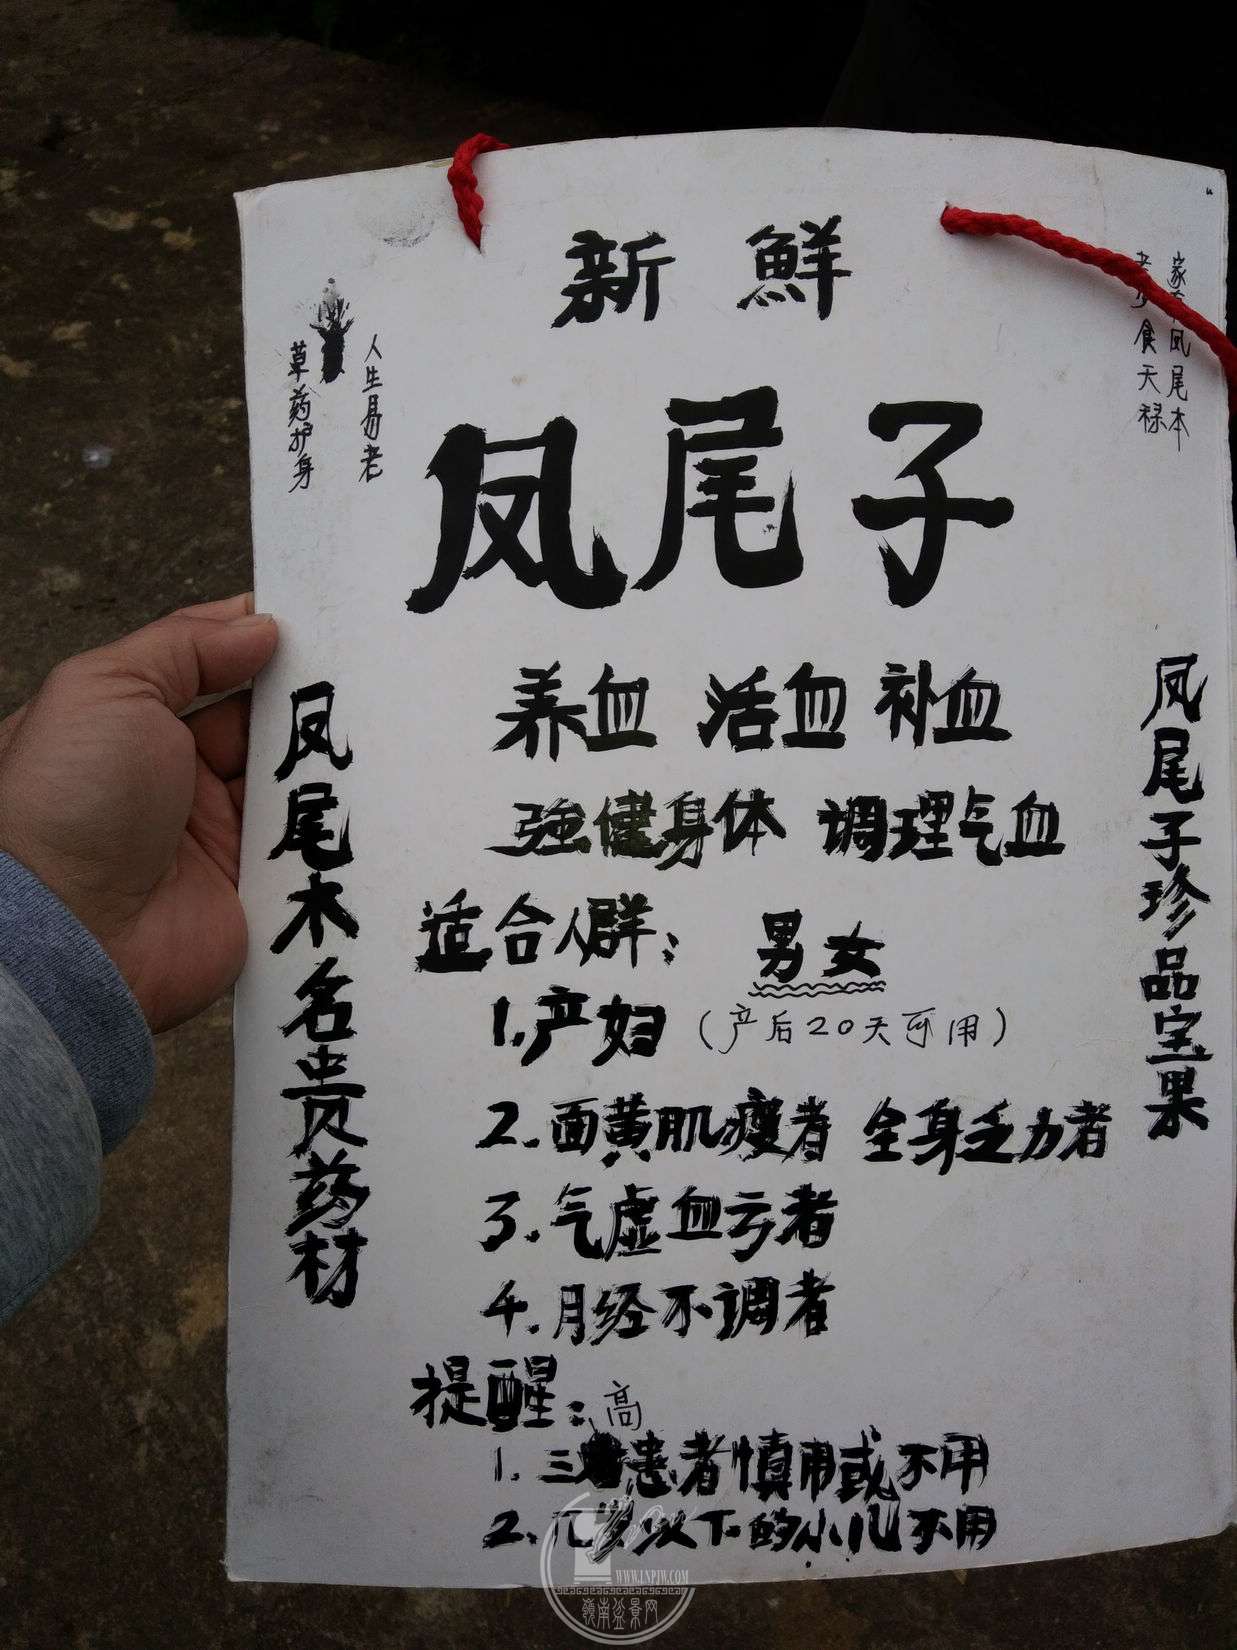 新鲜
人生易老
草药护身
家有凤尾本
老少食天禄
凤尾子
养血 活血 补血
强健身体 调理气血
适合人群: 男女
1.产妇(产后20天可用)
2.面黄肌瘦者 全身乏力者
3.气虚血亏者
4.月经不调者
提醒:
1.三高患者慎用或不用
2. 岁以下的小儿不用
凤尾木名贵药材
凤尾子珍品宝果
WWW.LNPJW.COM
嶺南盆景网